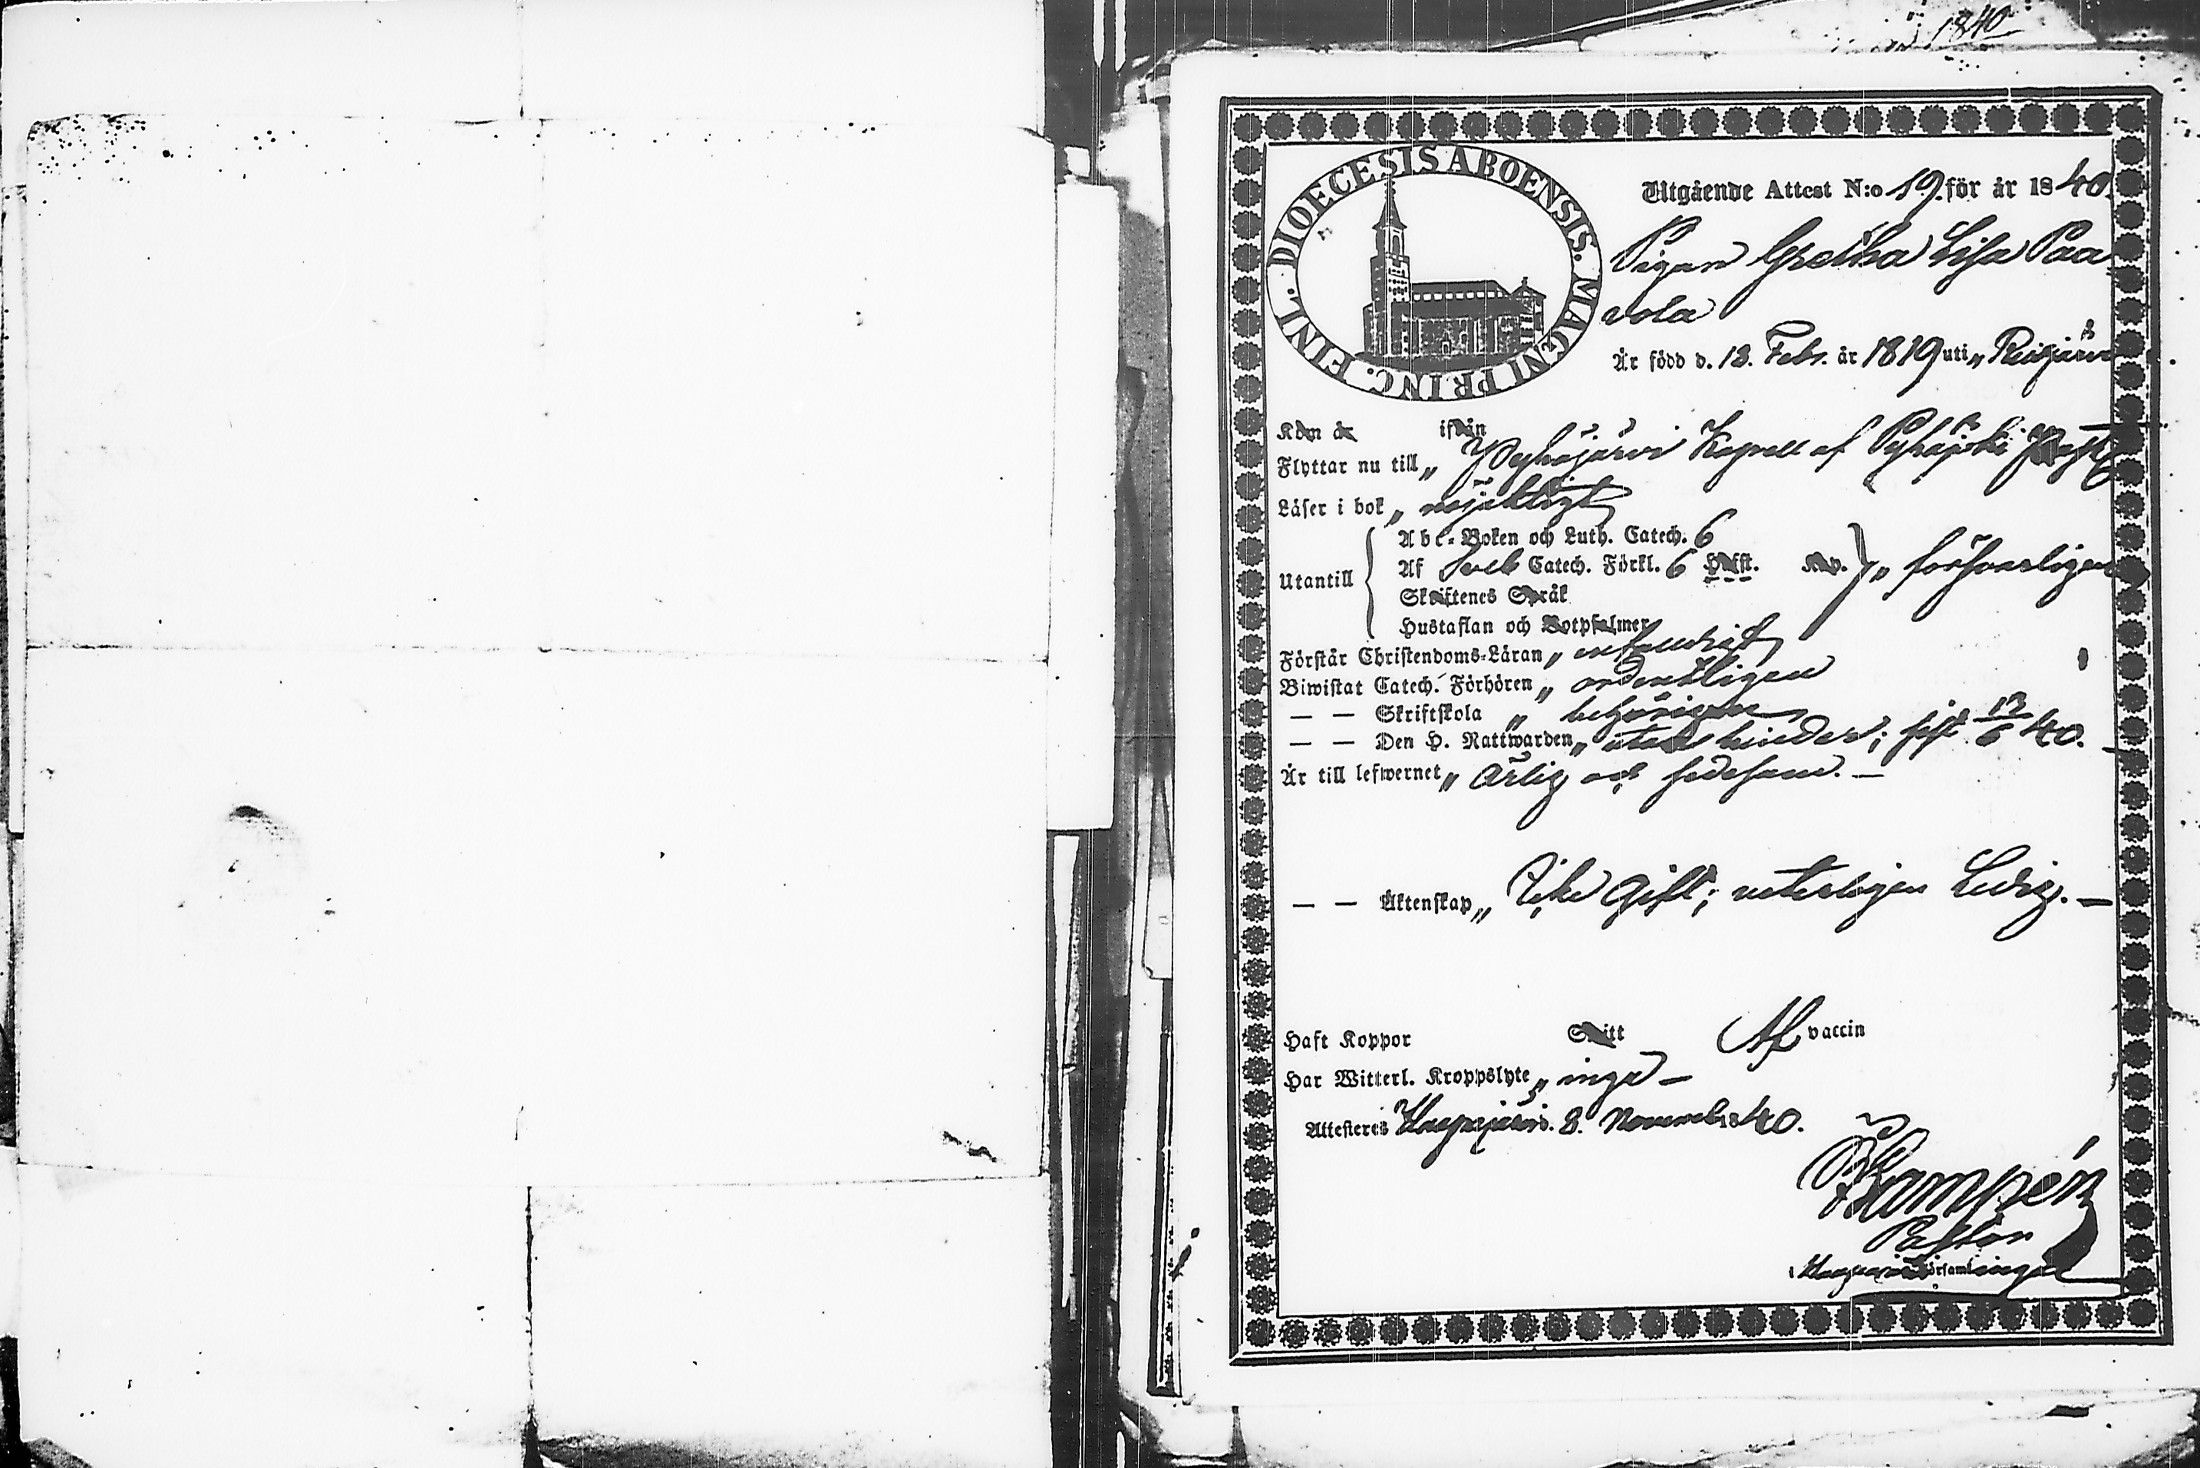 1840
DIOECESIS ABOENSIS. MAGNI PRINC. FINL.
Utgående Attest N:o 19. för år 1840.
Pigan Gretha Lisa Paa
vola
Är född d. 12. Febr. år 1819 uti Reisjärvi
Kom år ifrån
Flyttar nu till Pyhäjärvi Kapell af Pyhäjoki
Läser i bok nöjaktigt
Utantill
Abc-Boken och Luth. Catech. 6
Af Catech. Förkl. 6 Hufst. Kap. försvarligen
Skriftenes Språk
Hustaflan och Botpsalmer
Förstår Christendoms-Läran enfaldigt
Biwistat Catech. Förhören ordentligen
— — Skriftskola behörigen
— — Den H. Nattwarden utan hinder; sist 12/6 40.
Är till lefwernet ärlig och sedesam. —
— — Äktenskap Icke gift; veterligen Ledig. —
Haft Koppor Smitt Af vaccin
Har Witterl. Kroppslyte inga —
Attesteras Haapajärvi d. 8. November 1840.
Kampén
Pastor
i Haapajärvi församlingar